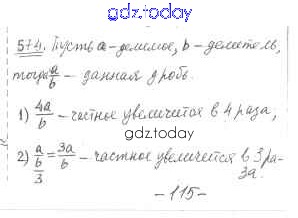 gdz.today
574. Пусть a - делимое, b - делитель,
тогда a/b - данная дробь.
1) 4a/b - частное увеличится в 4 раза,
gdz.today
2) a/(b/3) = 3a/b - частное увеличется в 3 ра-
за.
-115-
gdz.today